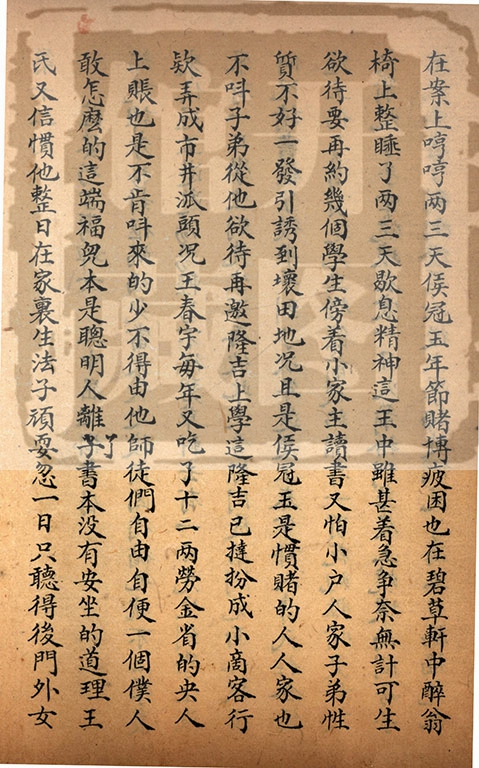 在案上哼哼两三天侯冠玉年節賭博疲困也在碧草軒中醉翁
椅上整睡了两三天歇息精神這王中雖甚着急争奈無計可生
欲待要再約幾個學生傍着小家主讀書又怕小户人家子弟性
質不好一發引誘到壞田地况且是侯冠玉是慣賭的人人家也
不呌子弟從他欲待再邀隆吉上學這隆吉已撻扮成小商客行
欵弄成市井派頭况王春宇每年又吃了十二两勞金省的央人
上賬也是不肯呌來的少不得由他師徒們自由自便一個僕人
敢怎麽的這端福兒本是聰明人離了書本没有安坐的道理王
氏又信慣他整日在家裏生法子頑耍忽一日只聽得後門外女